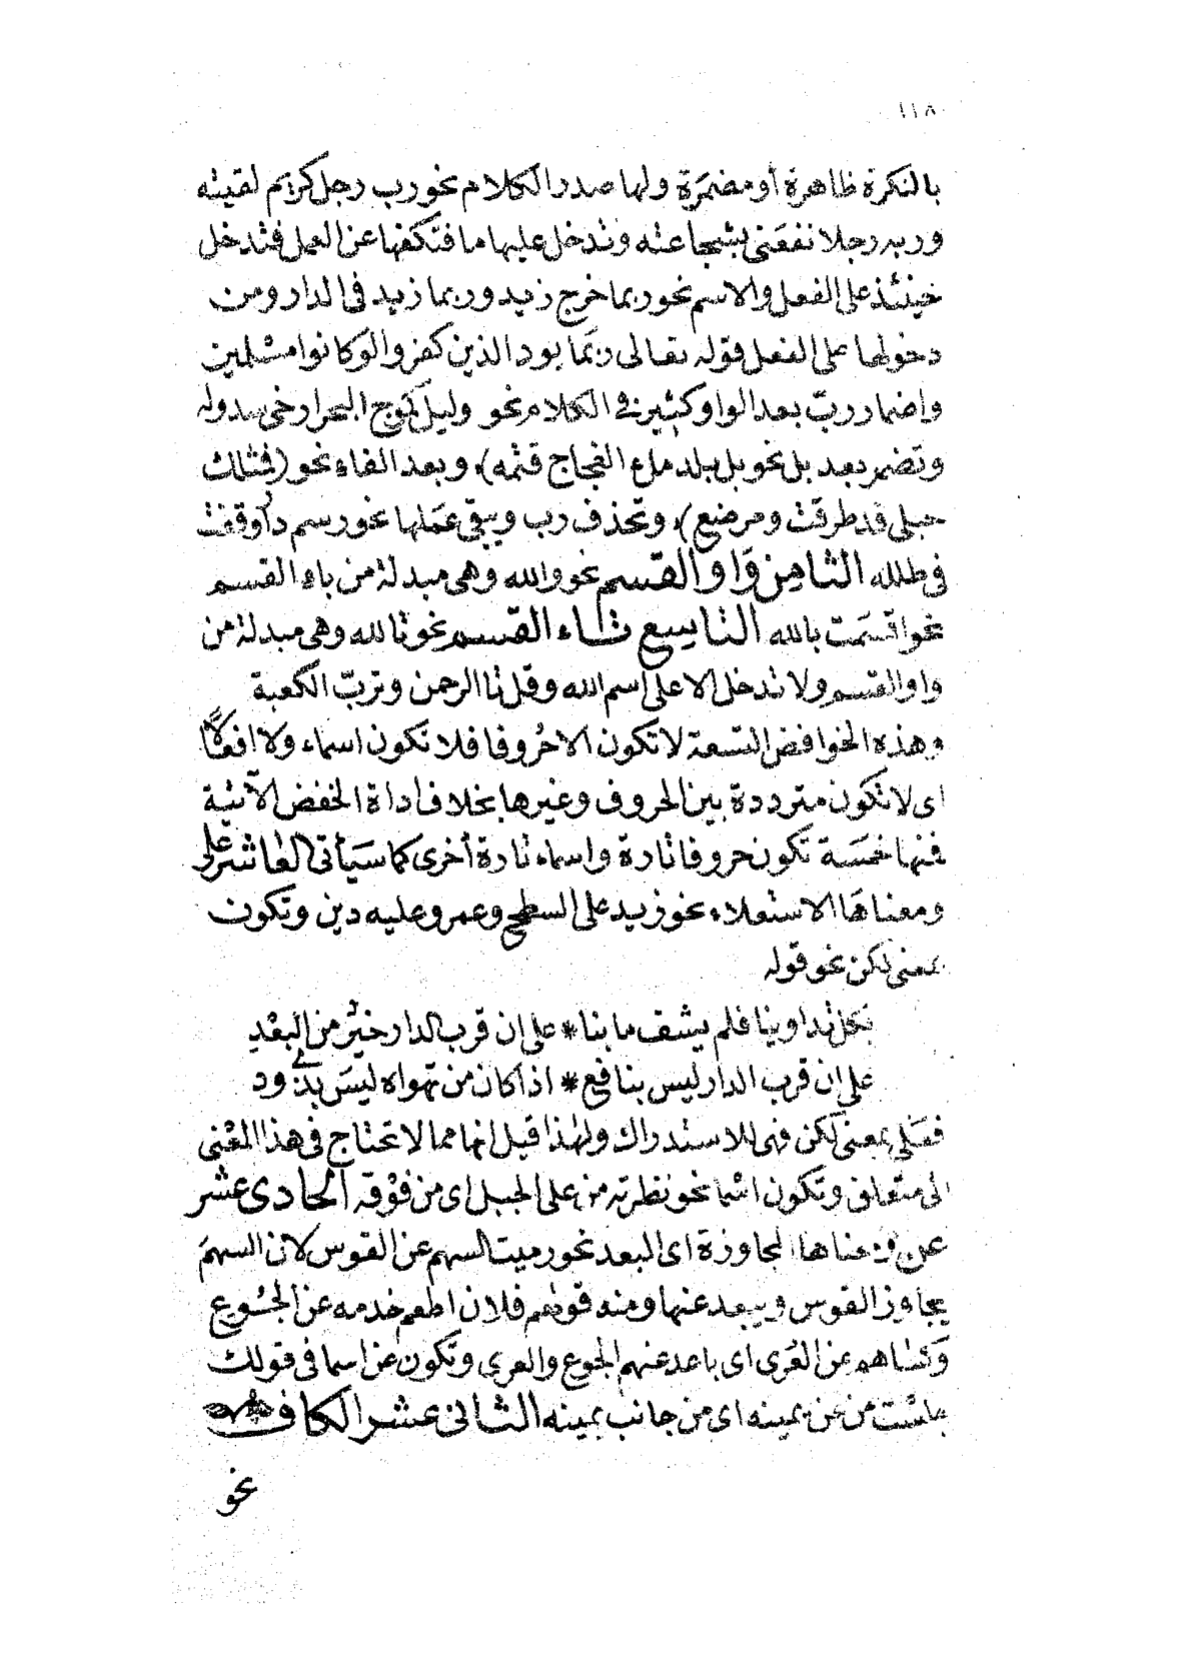 ١١٨
بالنكرة ظاهرة أو مضمرة ولها صدر الكلام نحو رب رجل كريم لقيته
وربه رجلا نفعنى بشجاعته وتدخل عليها ما فتكفها عن العمل فتدخل
حينئذ على الفعل والاسم نحو ربما خرج زيد وربما زيد فى الدار ومن
دخولها على الفعل قوله تعالى ربما يود الذين كفروا لو كانوا مسلمين
واضمار رب بعد الواو كثير فى الكلام نحو وليل كموج البحر ارخى سدوله
وتضمر بعد بل نحو بل بلد ملء الفجاج قتمه) وبعد الفاء نحو (فمثلك
حبلى قد طرقت ومرضع) وتحذف رب ويبقى عملها نحو رسم دار وقفت
فى طلله الثامن واو القسم نحو والله وهى مبدلة من باء القسم
نحو اقسمت بالله التاسع تاء القسم نحو تالله وهى مبدلة من
واو القسم ولا تدخل الا على اسم الله وقل تا الرحمن وترب الكعبة
وهذه الخوافض التسعة لا تكون الا حروفا فلا تكون اسماء ولا افعالا
اى لا تكون مترددة بين الحروف وغيرها بخلاف اداة الخفض الآتية
فمنها خمسة تكون حروفا تارة واسماء تارة أخرى كما سيأتى العاشر على
ومعناها الاستعلاء نحو زيد على السطح وعمرو عليه دين وتكون
بمعنى لكن نحو قوله
بكل تداوينا فلم يشف ما بنا * على ان قرب الدار خير من البعد
على ان قرب الدار ليس بنافع * اذا كان من تهواه ليس بذى ود
فعلى بمعنى لكن فهى للاستدراك ولهذا قيل انها مما لا تحتاج فى هذا المعنى
الى متعلق وتكون اسما نحو نظرته من على الجبل اى من فوقه الحادى عشر
عن ومعناها المجاوزة اى البعد نحو رميت السهم عن القوس لان السهم
يجاوز القوس ويبعد عنها ومنه قولهم فلان اطعم خدمه عن الجوع
وكساهم عن العرى اى باعد عنهم الجوع والعرى وتكون عن اسما فى قولك
جلست من عن يمينه اى من جانب يمينه الثانى عشر الكاف
نحو